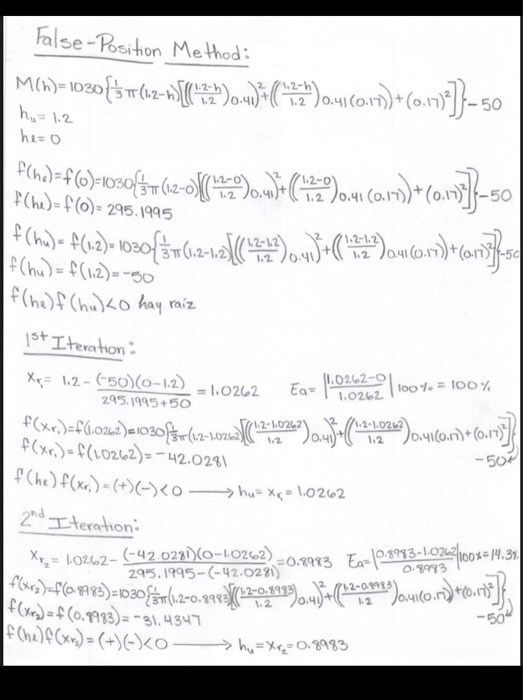 False-Position Method:
M(h)=1030{1/3 π(1.2-h)[((1.2-h/1.2)0.41)²+((1.2-h/1.2)0.41(0.17))+(0.17)²]}-50
hu=1.2
hl=0
f(hl)=f(0)=1030{1/3 π(1.2-0)[((1.2-0/1.2)0.41)²+((1.2-0/1.2)0.41(0.17))+(0.17)²]}-50
f(hl)=f(0)=295.1995
f(hu)=f(1.2)=1030{1/3 π(1.2-1.2)[((1.2-1.2/1.2)0.41)²+((1.2-1.2/1.2)0.41(0.17))+(0.17)²]}-50
f(hu)=f(1.2)=-50
f(hl)f(hu)<0 hay raíz
1st Iteration:
Xr₁= 1.2 - (-50)(0-1.2)/295.1995+50 = 1.0262 Ea=|1.0262-0/1.0262|100%=100%
f(Xr₁)=f(1.0262)=1030{1/3 π(1.2-1.0262)[((1.2-1.0262/1.2)0.41)²+((1.2-1.0262/1.2)0.41(0.17))+(0.17)²]}-50
f(Xr₁)=f(1.0262)=-42.0281
f(hl)f(Xr₁)=(+)(-)<0 → hu=Xr₁=1.0262
2nd Iteration:
Xr₂= 1.0262 - (-42.0281)(0-1.0262)/295.1995-(-42.0281) =0.8983 Ea=|0.8983-1.0262/0.8983|100%=14.3%
f(Xr₂)=f(0.8983)=1030{1/3 π(1.2-0.8983)[((1.2-0.8983/1.2)0.41)²+((1.2-0.8983/1.2)0.41(0.17))+(0.17)²]}-50
f(Xr₂)=f(0.8983)=-31.4347
f(hl)f(Xr₂)=(+)(-)<0 → hu=Xr₂=0.8983